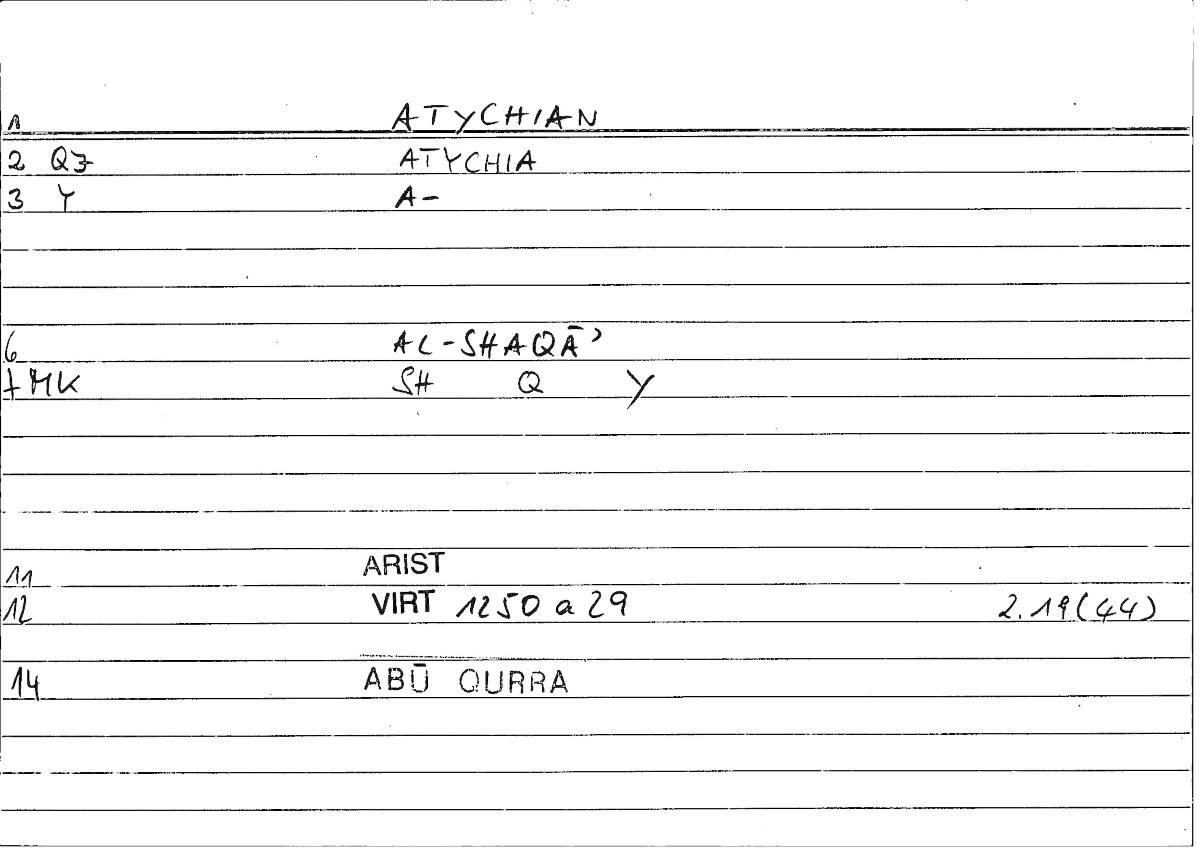 1 ATYCHIAN
2 QZ ATYCHIA
3 Y A-
6 AL-SHAQĀʾ
7 MK SH Q Y
11 ARIST
12 VIRT 1250 a 29 2.19(44)
14 ABŪ QURRA